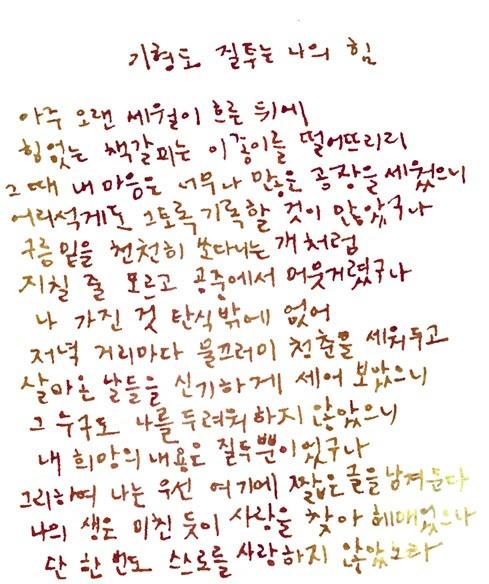 기형도 질투는 나의 힘
아주 오랜 세월이 흐른 뒤에
힘없는 책갈피는 이 종이를 떨어뜨리리
그 때 내 마음은 너무나 많은 공장을 세웠으니
어리석게도 그토록 기록할 것이 많았구나
구름 밑을 천천히 쏘다니는 개처럼
지칠 줄 모르고 공중에서 머뭇거렸구나
나 가진 것 탄식밖에 없어
저녁 거리마다 물끄러미 청춘을 세워두고
살아온 날들을 신기하게 세어 보았으니
그 누구도 나를 두려워하지 않았으니
내 희망의 내용은 질투뿐이었구나
그리하여 나는 우선 여기에 짧은 글을 남겨둔다
나의 생은 미친 듯이 사랑을 찾아 헤매었으나
단 한 번도 스스로를 사랑하지 않았노라